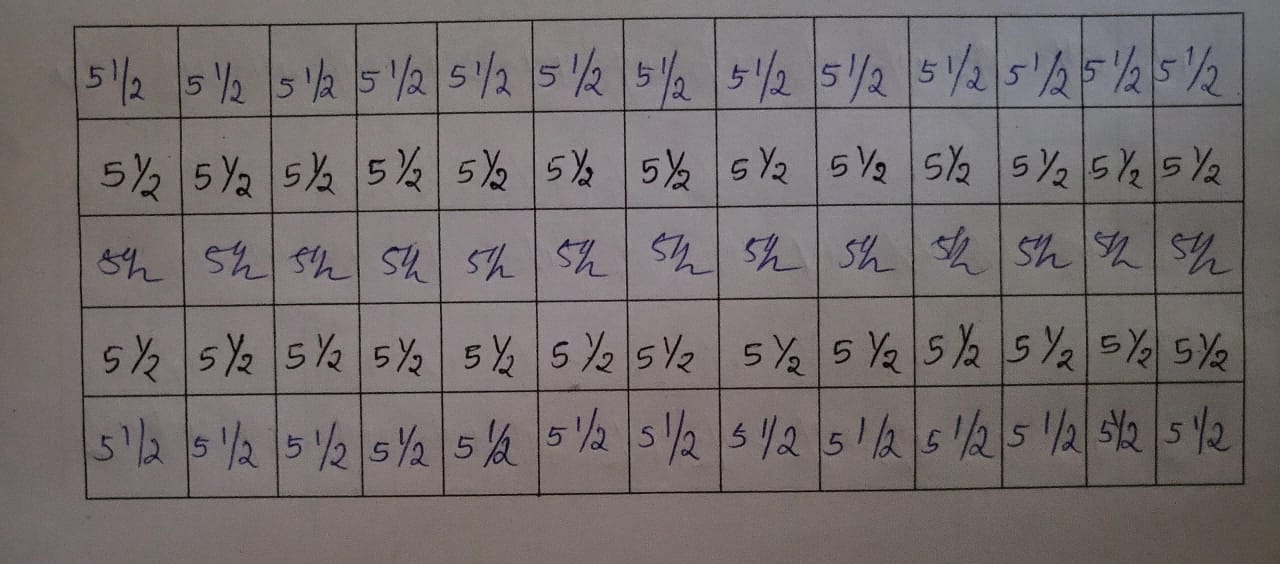 5 1/2 5 1/2 5 1/2 5 1/2 5 1/2 5 1/2 5 1/2 5 1/2 5 1/2 5 1/2 5 1/2 5 1/2 5 1/2
5 1/2 5 1/2 5 1/2 5 1/2 5 1/2 5 1/2 5 1/2 5 1/2 5 1/2 5 1/2 5 1/2 5 1/2 5 1/2
5 1/2 5 1/2 5 1/2 5 1/2 5 1/2 5 1/2 5 1/2 5 1/2 5 1/2 5 1/2 5 1/2 5 1/2 5 1/2
5 1/2 5 1/2 5 1/2 5 1/2 5 1/2 5 1/2 5 1/2 5 1/2 5 1/2 5 1/2 5 1/2 5 1/2 5 1/2
5 1/2 5 1/2 5 1/2 5 1/2 5 1/2 5 1/2 5 1/2 5 1/2 5 1/2 5 1/2 5 1/2 5 1/2 5 1/2